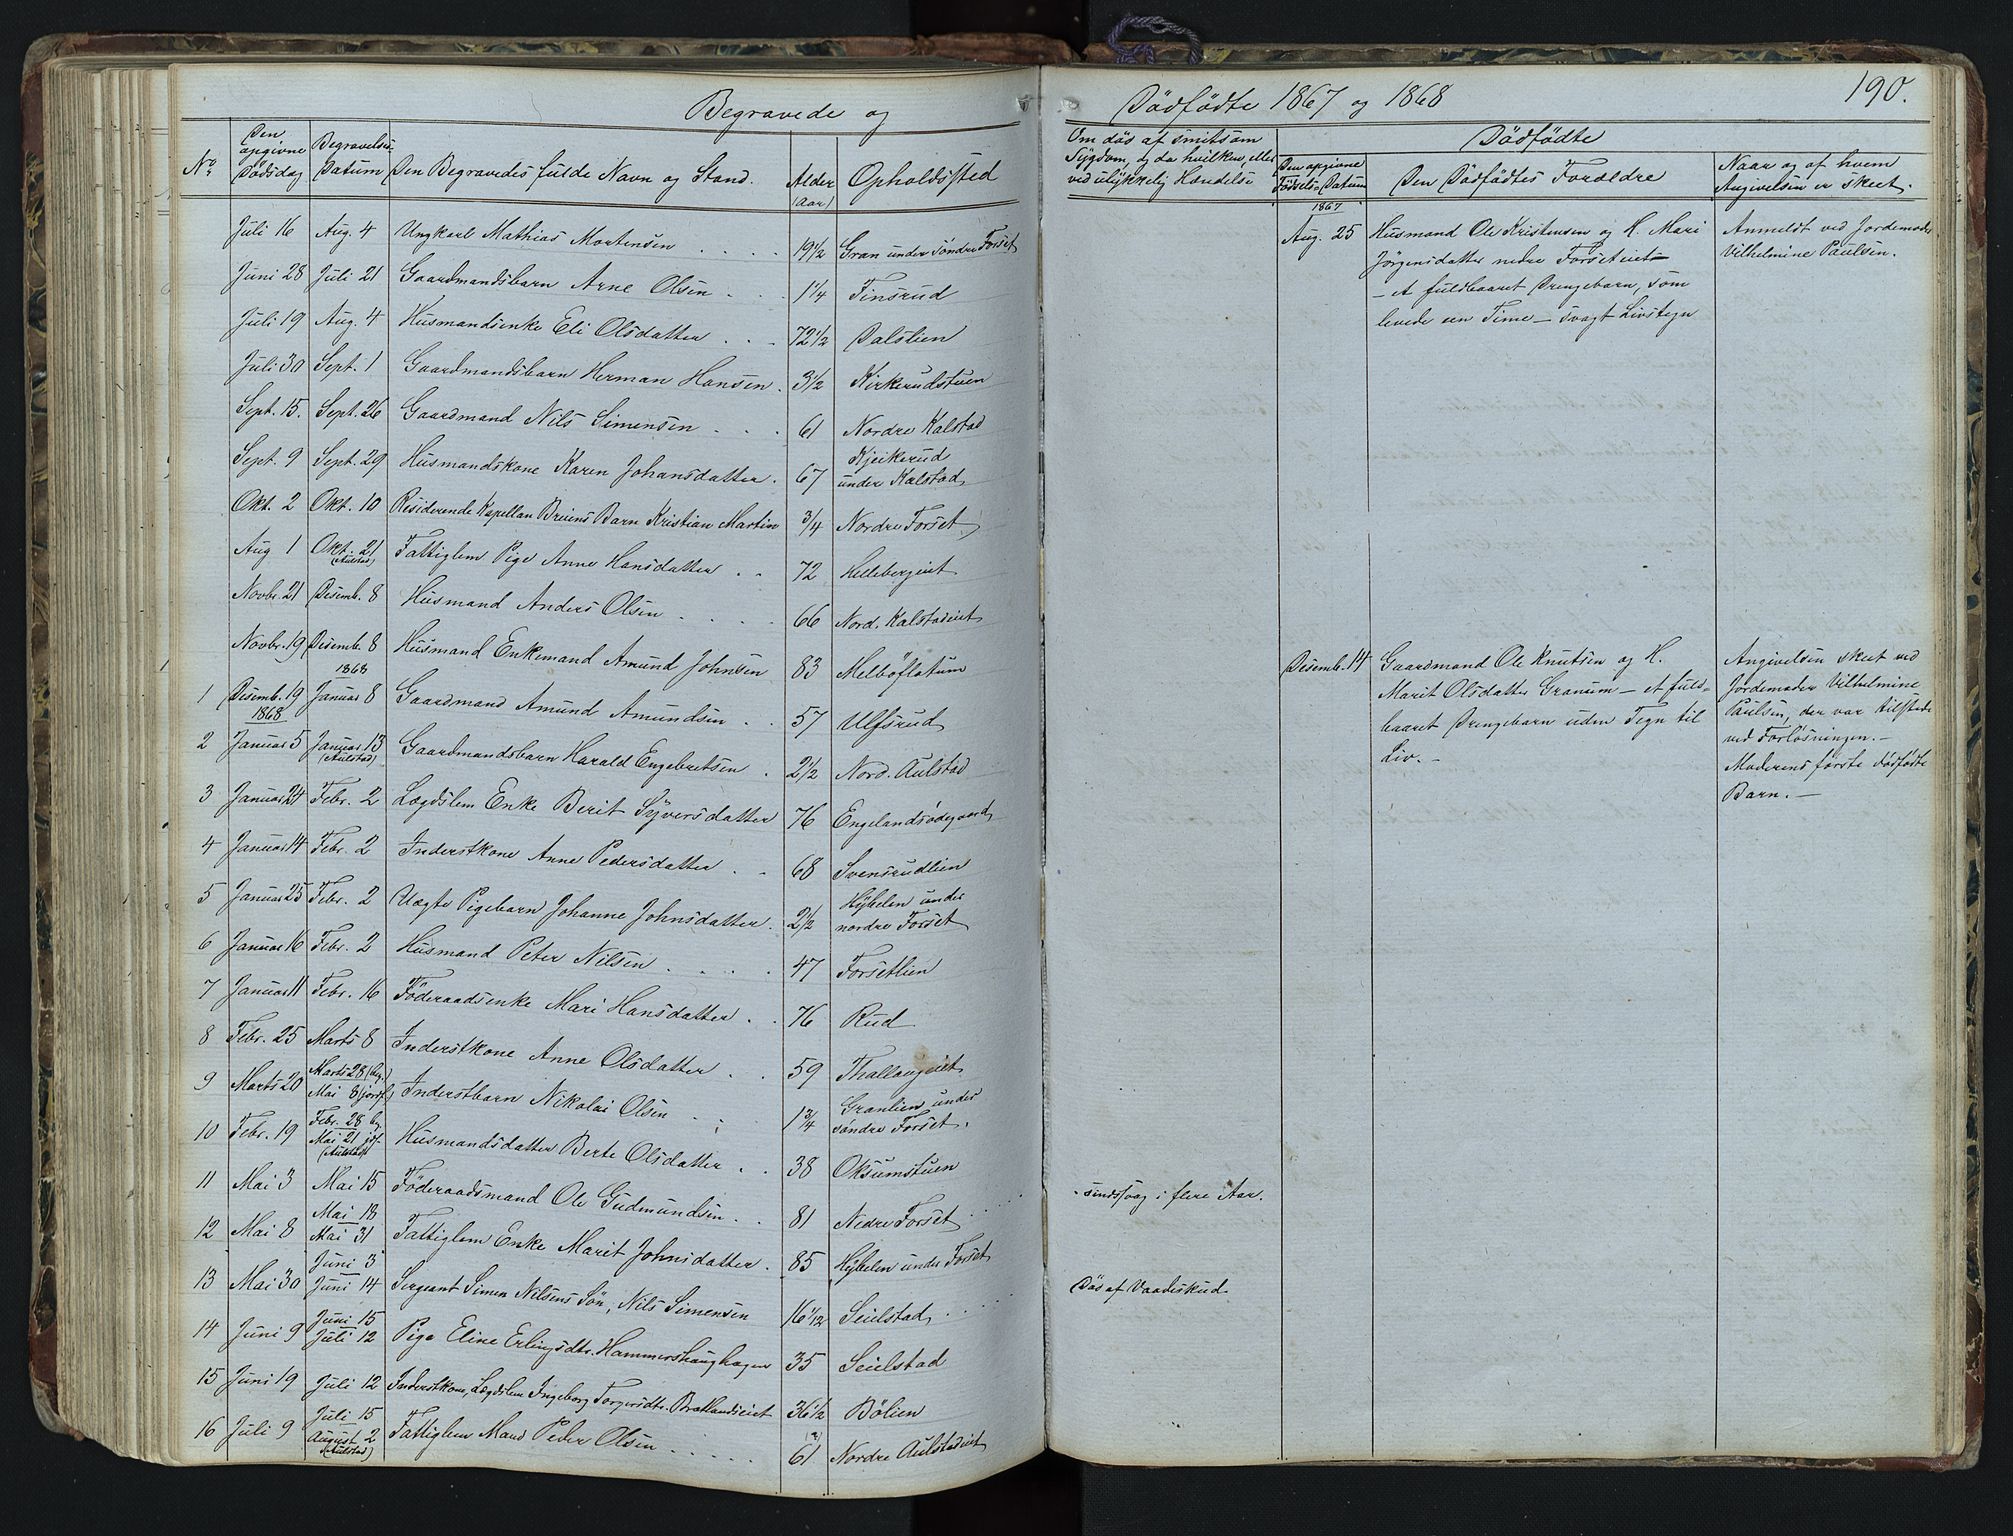 Begravede og
No. | Den opgivne Dødsdag | Begravelses Datum | Den Begravedes fulde Navn og Stand. | Alder (Aar) | Opholdssted
Juli 16 | Aug. 4 | Ungkarl Mathias Mortensen | 19 1/2 | Gran under Søndre Forset
Juni 28 | Juli 21 | Gaardmandsbarn Arne Olsen | 1 1/4 | Finsrud
Juli 19 | Aug. 4 | Husmandsenke Eli Olsdatter | 72 1/2 | Dalslien
Juli 30 | Sept. 1 | Gaardmandsbarn Herman Hansen | 3 1/2 | Kirkerudstuen
Sept. 15. | Sept. 26 | Gaardmand Nils Simensen | 61 | Nordre Kalstad
Sept. 9 | Sept. 29 | Husmandskone Karen Johansdatter | 67 | Kjeikerud under Kalstad
Okt. 2 | Okt. 10 | Residerende Kapellan Bruuns Barn Kristian Martin | 3/4 | Nordre Forset
Aug 1 | Okt. 21 (Aulstad) | Fattiglem Pige Anne Hansdatter | 72 | Hellebergeiet
Novbr. 21 | Desemb. 8 | Husmand Anders Olsen | 66 | Nord. Kalstadeiet
Novbr. 19 | Desemb. 8 | Husmand Enkemand Amund Johnsen | 83 | Melböflatum
1 | Desemb. 19 | 1868 Januar 8 | Gaardmand Amund Amundsen | 57 | Ulfsrud
2 | 1868 Januar 5 | Januar 13 (Aulstad) | Gaardmandsbarn Harald Engebretsen | 2 1/2 | Nord. Aulstad
3 | Januar 24 | Febr. 2 | Lægdslem Enke Berit Syversdatter | 76 | Engelandsödegaard
4 | Januar 14 | Febr. 2 | Inderstkone Anne Pedersdatter | 68 | Svensrudlien
5 | Januar 25 | Febr. 2 | Uægte Pigebarn Johanne Johnsdatter | 2 1/2 | Hybelen under nordre Forset
6 | Januar 16 | Febr. 2 | Husmand Peter Nilsen | 47 | Forsetlien
7 | Januar 11 | Febr. 16 | Föderaadsenke Mari Hansdatter | 76 | Rud
8 | Febr. 25 | Marts 8 | Inderstkone Anne Olsdatter | 59 | Thallaugeiet
9 | Marts 20 | Marts 28 (beg.) Mai 8 (jordf.) | Inderstbarn Nikolai Olsen | 1 3/4 | Granlien under söndre Forset
10 | Febr. 19 | Febr. 28 bg. Mai 21 jdf. (Aulstad) | Husmandsdatter Berte Olsdatter | 38 | Oksumstuen
11 | Mai 3 | Mai 15 | Föderaadsmand Ole Gudmundsen | 81 | Nedre Forset
12 | Mai 8 | Mai 18 Mai 31 | Fattiglem Enke Marit Johnsdatter | 85 | Hybelen under Forset
13 | Mai 30 | Juni 3 Juni 14 | Sergeant Simen Nilsens Sön, Nils Simensen | 16 1/12 | Seielstad
14 | Juni 9 | Juni 15 Juli 12 | Pige Eline Erlingsdtr. Hammershaughagen | 35 | Seielstad
15 | Juni 19 | Juli 12 | Inderstkone, Lægdslem Ingeborg Torgersdtr. Brætlandseiet | 36 1/2 | Bölien
16 | Juli 9 | Juli 15 August 2 (Aulstad) | Fattiglem Mand Peder Olsen | 61 (?) | Nordre Aulstadeiet
Dödfödte 1867 og 1868
190.
Om döds af smitsom
Sygdom, og da hvilken, eller
ved ulykkelig Hændelse
Dödfödte
Den opgivne Födsels-Datum | Den Dödfödtes Forældre | Naar og af hvem Angivelsen er skeet.
1867
Aug. 25
Husmand Ole Kristensen og H. Mari
Jörgensdatter nedre Forseteiet
- et fuldbaaret Drengebarn, som
levede een Time - svagt Livstegn
Anmeldt ved Jordemoder
Vilhelmine Paulsen.
Desemb. 14
Gaardmand Ole Knutsen og H.
Marit Olsdatter Granum - et fuld-
baaret Drengebarn uden Tegn til
Liv. -
Angivelsen skeet ved
Jordemoder Vilhelmine
Paulsen, der var tilstede
ved Forløsningen. -
Moderens förste dödfödte
Barn. -
sindssvag i flere Aar.
Döds af Vaadeskud